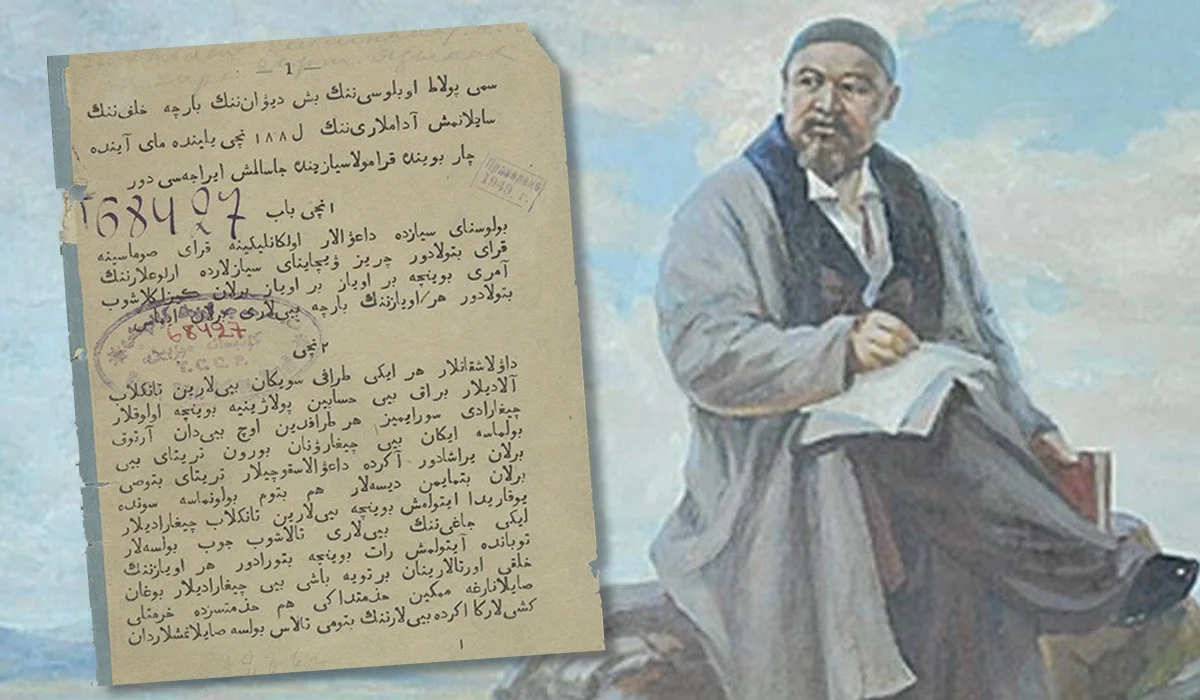 — 1 —
سمی پولاط اوبلوسی‌ننك بش دیوان‌ننك بارچه خلفی‌ننك
سایلانمش آداملاری‌ننك ل ۱۸۸ نچی یلینده مای آینده
چار بوینده قرامولاسیازینده جاسالمش ایراجه‌سی دور
Проверено
1949 г.
68427
۱نچی باب
بولوسنای سیازده داعوالار اولکانلیکینه قرای صوماسینه
قرای بتولادور چریز ویچاینای سیازلارده ارلوعلارننك
آمری بوینچه بر اویاز بر اویاز برلان کیزاکلاشوب
بتولادور هر اویازننك بارچه بی‌لاری برلان
68427
Т.С.С.Р.
۲نچی
داولاشقانلار هر ایکی طرافی سویکان بی‌لارین تانکلاب
آلادیلار براق بی حسابین پولاژینیه بوینچه اولوقلار
چیغارادی سورایمیز هر طرافدین اوچ بی‌دان آرتوق
بولماسه ایکان بی چیغاروننان بورون تریتای بی
برلان یراشادور آکرده داعوالاسقوچیلار تریتای بتوصی
برلان بتمایمن دیسه‌لار هم بتوم بولونماسه سونده
یوقاریدا ایتولمش بوینچه بی‌لارین تانکلاب چیغارادیلار
ایکی جاغی‌ننك بی‌لاری تالاشوب جوب بولسه‌لار
توبانده آیتولمش رات بوینچه بتورادور هر اویازننك
خلقی اورتالارینان برتوبه باشی بی چیغارادیلار بوغان
صایلانارغه ممکین خذمتداکی هم خذمتسزده خرمتلی
کشی‌لارکا اکرده بی‌لارننك بتومی تالاس بولسه صایلانمشلاردان
۱